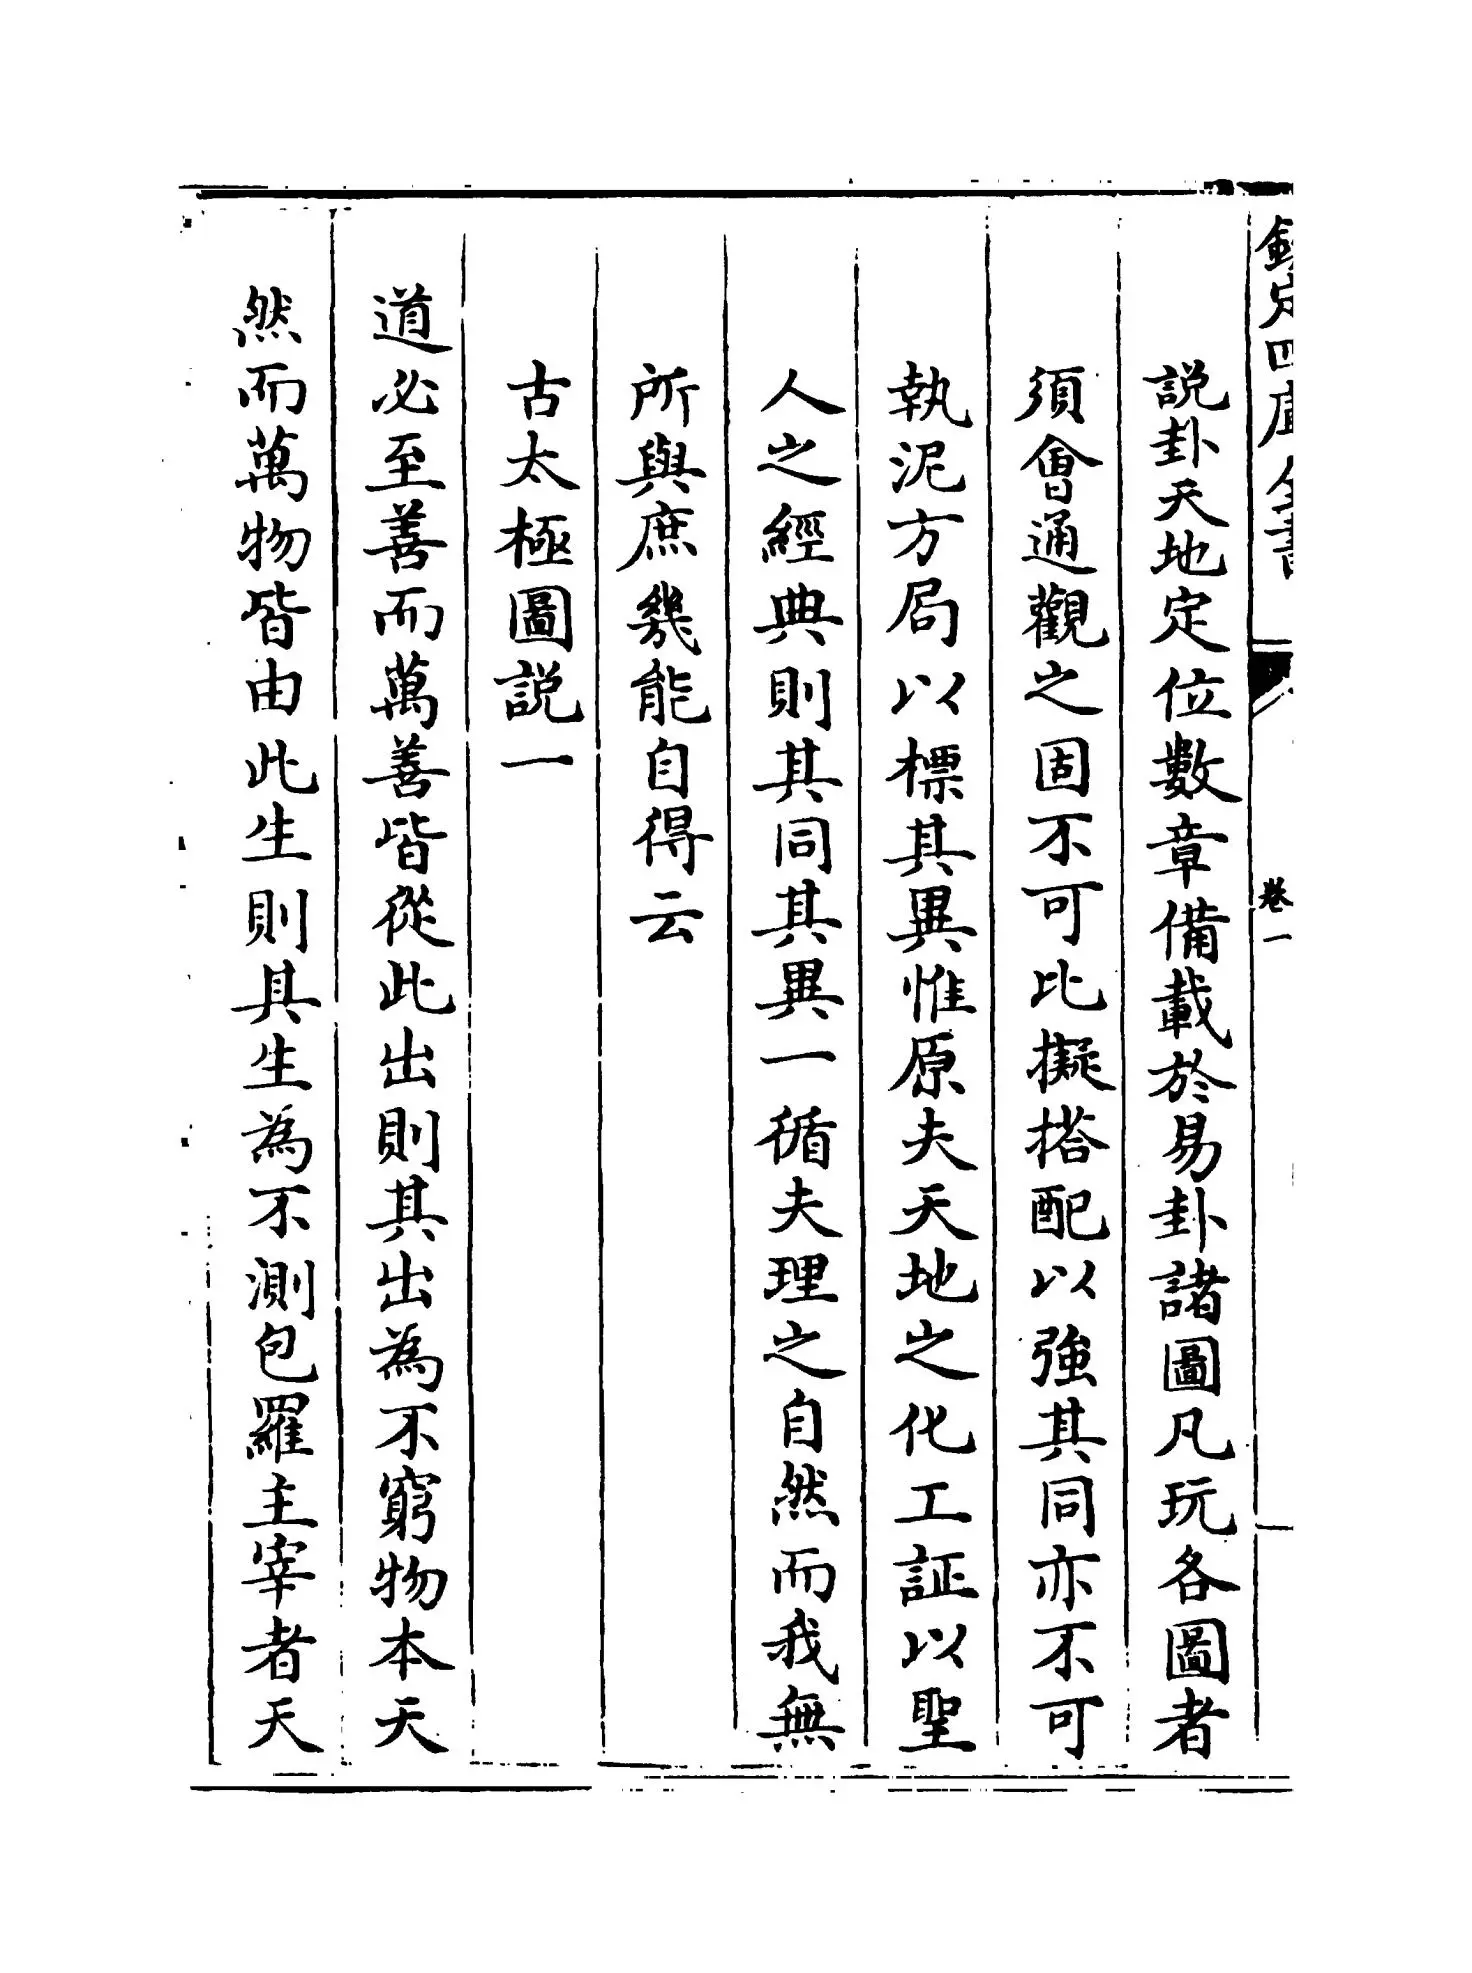 欽定四庫全書
卷一
説卦天地定位數章備載於易卦諸圖凡玩各圖者
須會通觀之固不可比擬搭配以強其同亦不可
執泥方局以標其異惟原夫天地之化工証以聖
人之經典則其同其異一循夫理之自然而我無
所與庶幾能自得云
古太極圖説一
道必至善而萬善皆從此出則其出為不窮物本天
然而萬物皆由此生則具生為不測包羅主宰者天